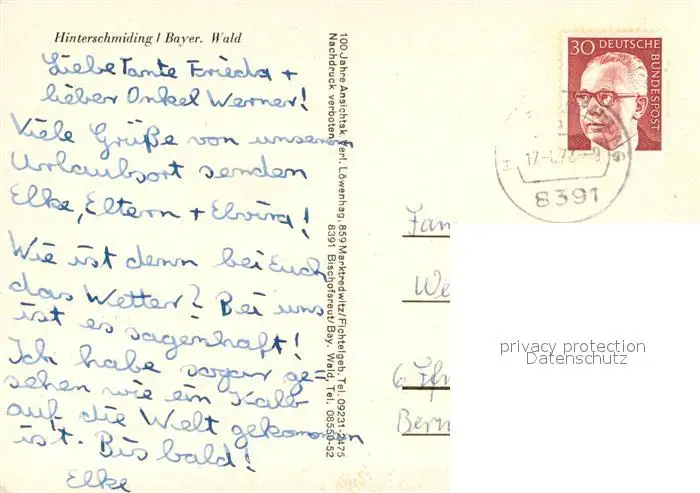 Hinterschmiding / Bayer. Wald
Liebe Tante Frieda +
lieber Onkel Werner!
Viele Grüße von unserem
Urlaubsort senden
Elke, Eltern + Elvira!
Wie ist denn bei Euch
das Wetter? Bei uns
ist es sagenhaft!
Ich habe sogar ge=
sehen wie ein Kalb
auf die Welt gekommen
ist. Bis bald!
Elke
100 Jahre Ansichtsk. Verl. Löwenhag, 859 Marktredwitz/Fichtelgeb. Tel. 09231-2475
Nachdruck verboten
8391 Bischofsreut/Bay. Wald, Tel. 08550-52
30 DEUTSCHE
BUNDESPOST
8391
Fam
We
6
Bern
privacy protection
Datenschutz